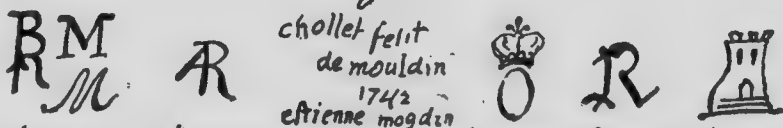 BR M
M
AR
chollet felit
de mouldin
1742
estienne mogdin
O
R